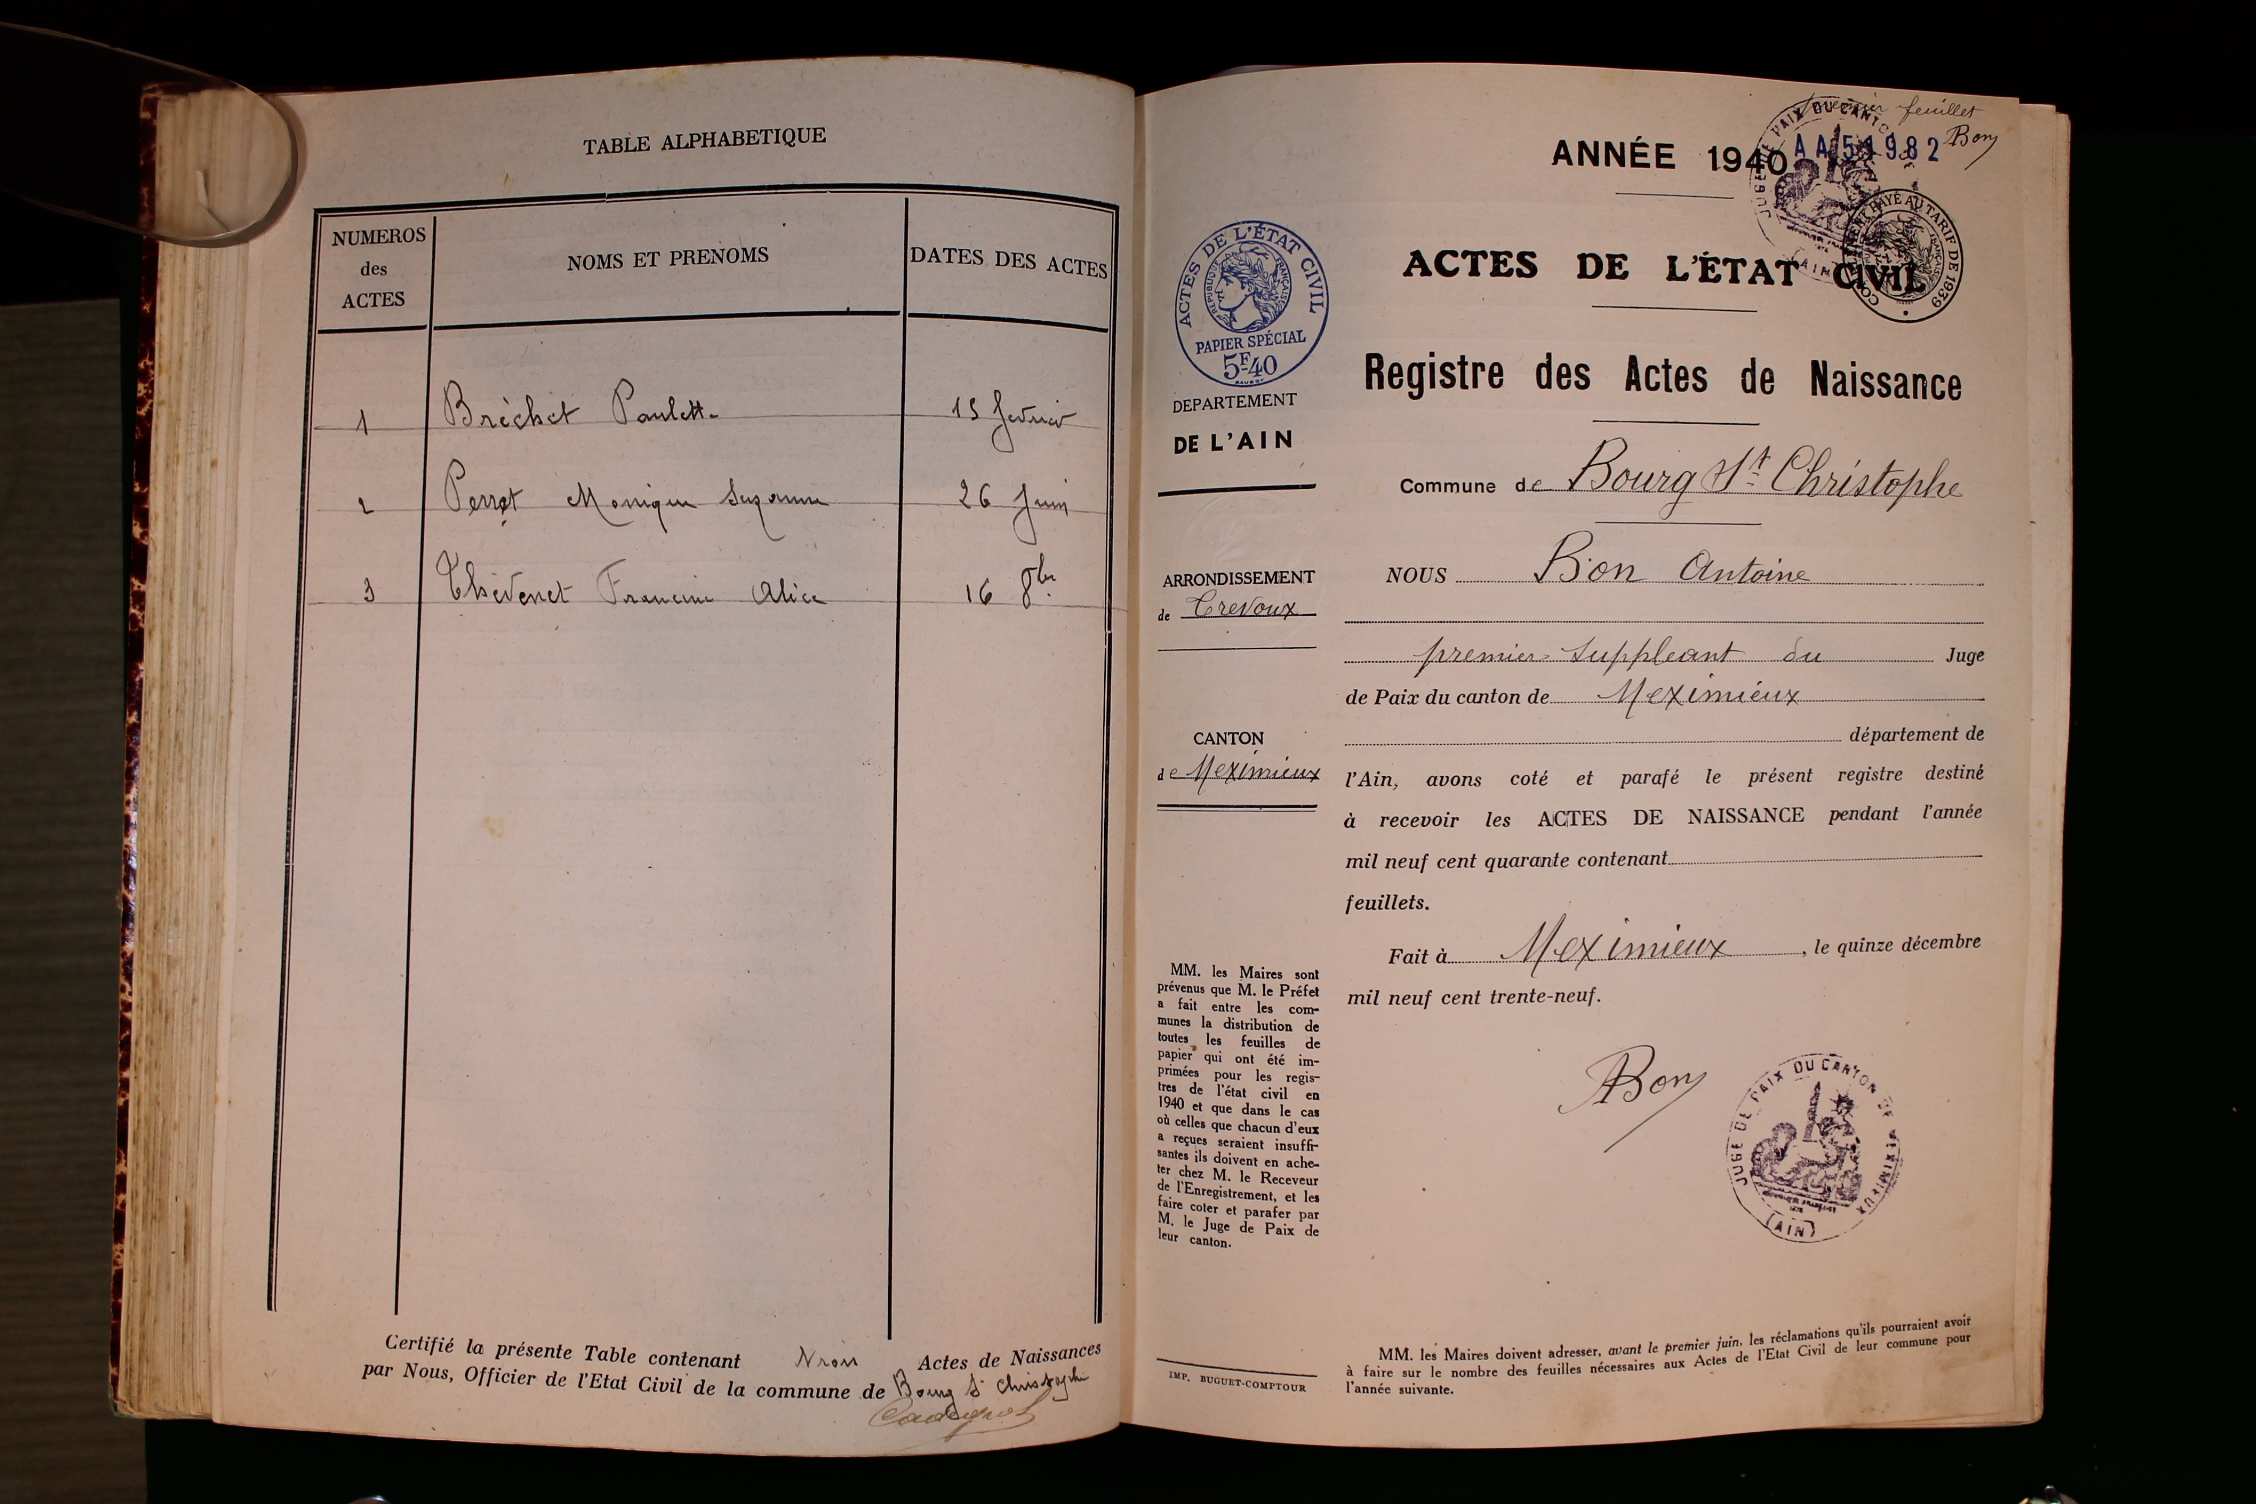 TABLE ALPHABETIQUE
NUMEROS
des
ACTES
NOMS ET PRENOMS
DATES DES ACTES
1 Bréchet Paulette 15 février
2 Perret Monique Suzanne 26 Juin
3 Thévenet Francine Alice 16 8bre
Certifié la présente Table contenant Actes de Naissances
par Nous, Officier de l'Etat Civil de la commune de Bourg St Christophe
premier feuillet
Bon
ANNÉE 1940
AA 51982
JUGE DE PAIX DU CANTON DE
(AIN)
COMPLÉMENT PAYÉ AU TARIF DE 1939
ACTES DE L'ÉTAT CIVIL
ACTES DE L'ÉTAT CIVIL
RÉPUBLIQUE FRANÇAISE
PAPIER SPÉCIAL
5F40
Registre des Actes de Naissance
DEPARTEMENT
DE L'AIN
Commune de Bourg St Christophe
ARRONDISSEMENT
de Trevoux
CANTON
de Meximieux
NOUS Bon Antoine
premier suppleant du Juge
de Paix du canton de Meximieux
département de
l'Ain, avons coté et parafé le présent registre destiné
à recevoir les ACTES DE NAISSANCE pendant l'année
mil neuf cent quarante contenant
feuillets.
Fait à Meximieux, le quinze décembre
mil neuf cent trente-neuf.
Bon
JUGE DE PAIX DU CANTON DE MEXIMIEUX
(AIN)
MM. les Maires sont
prévenus que M. le Préfet
a fait entre les com-
munes la distribution de
toutes les feuilles de
papier qui ont été im-
primées pour les regis-
tres de l'état civil en
1940 et que dans le cas
où celles que chacun d'eux
a reçues seraient insuffi-
santes ils doivent en ache-
ter chez M. le Receveur
de l'Enregistrement, et les
faire coter et parafer par
M. le Juge de Paix de
leur canton.
IMP. BUGUET-COMPTOUR
MM. les Maires doivent adresser, avant le premier juin, les réclamations qu'ils pourraient avoir
à faire sur le nombre des feuilles nécessaires aux Actes de l'Etat Civil de leur commune pour
l'année suivante.